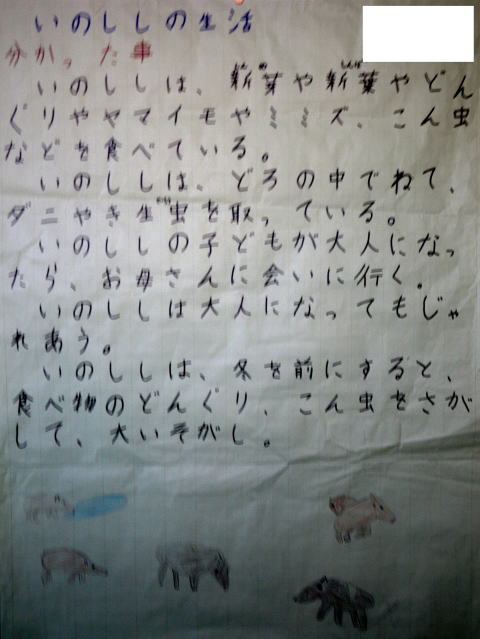 いのししの生活
分かった事
いのししは、新芽や新葉やどん
ぐりやヤマイモやミミズ、こん虫
などを食べている。
いのししは、どろの中でねて、
ダニやき生虫を取っている。
いのししの子どもが大人になっ
たら、お母さんに会いに行く。
いのししは大人になってもじゃ
れあう。
いのししは、冬を前にすると、
食べ物のどんぐり、こん虫をさが
して、大いそがし。